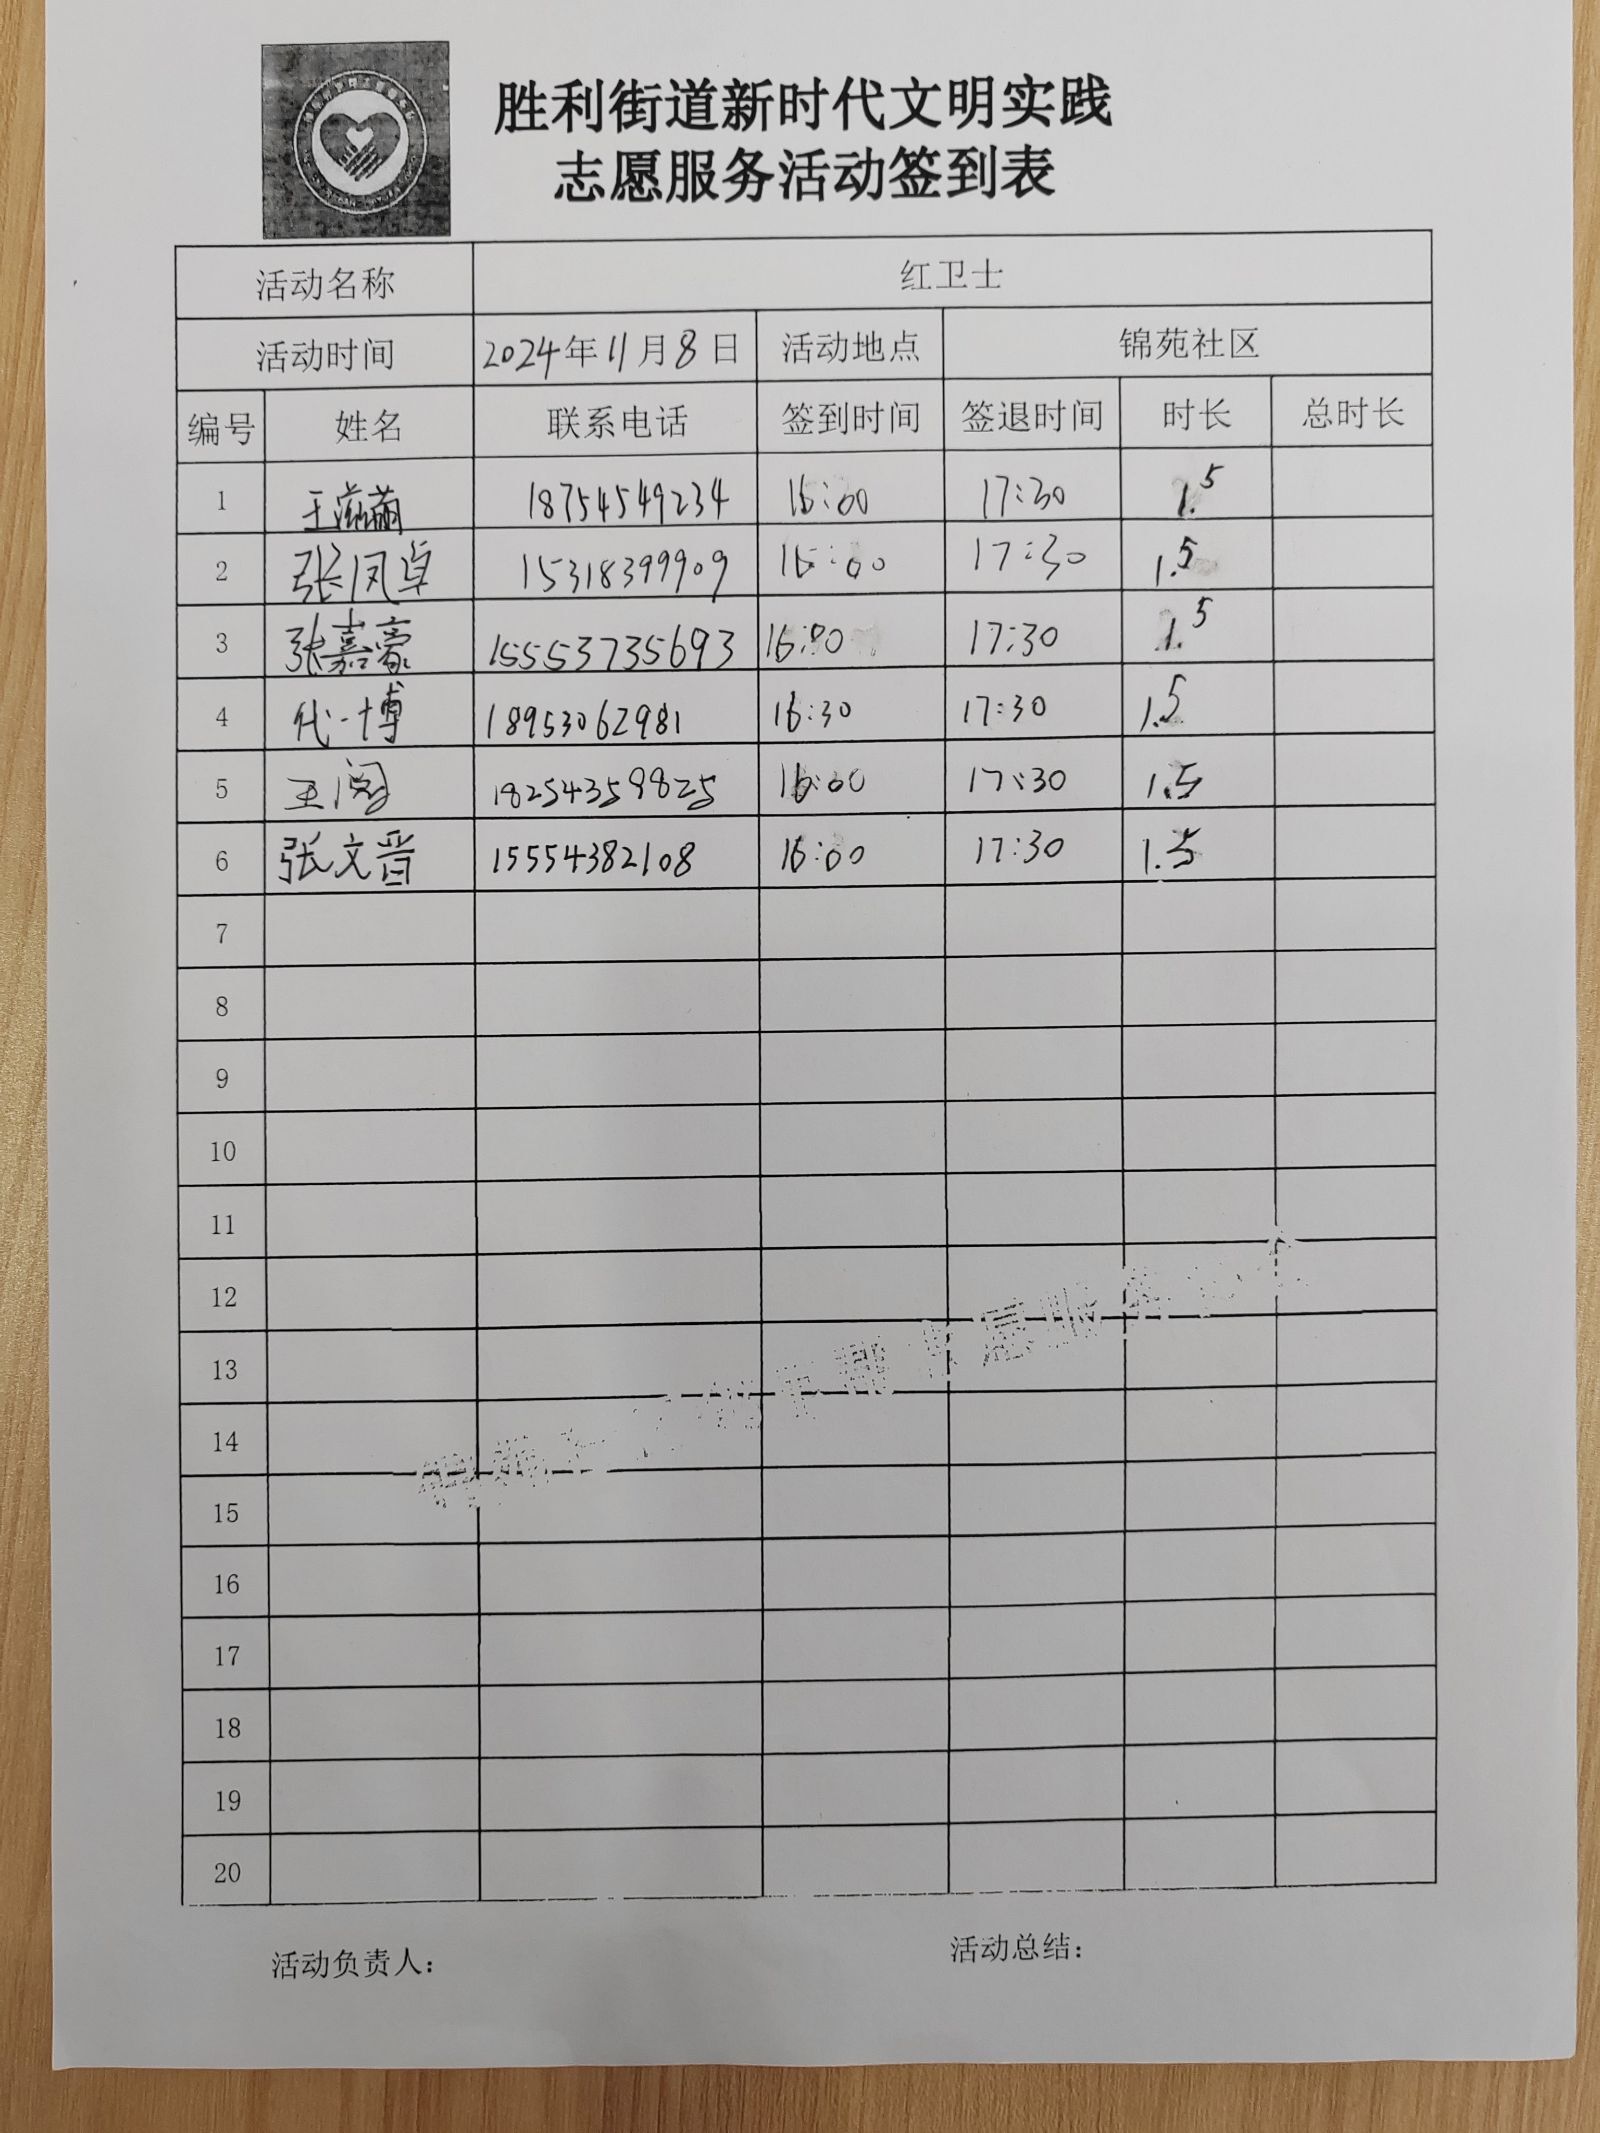 胜利街道新时代文明实践
志愿服务活动签到表
活动名称 红卫士
活动时间 2024年11月8日 活动地点 锦苑社区
编号 姓名 联系电话 签到时间 签退时间 时长 总时长
1 王滋萌 18754549234 16:00 17:30 1.5
2 张凤卓 15318399909 16:00 17:30 1.5
3 张嘉豪 15553735693 16:00 17:30 1.5
4 代一博 18953062981 16:30 17:30 1.5
5 王阅 18254359825 16:00 17:30 1.5
6 张文晋 15554382108 16:00 17:30 1.5
7
8
9
10
11
12
13
14
15
16
17
18
19
20
活动负责人： 活动总结：